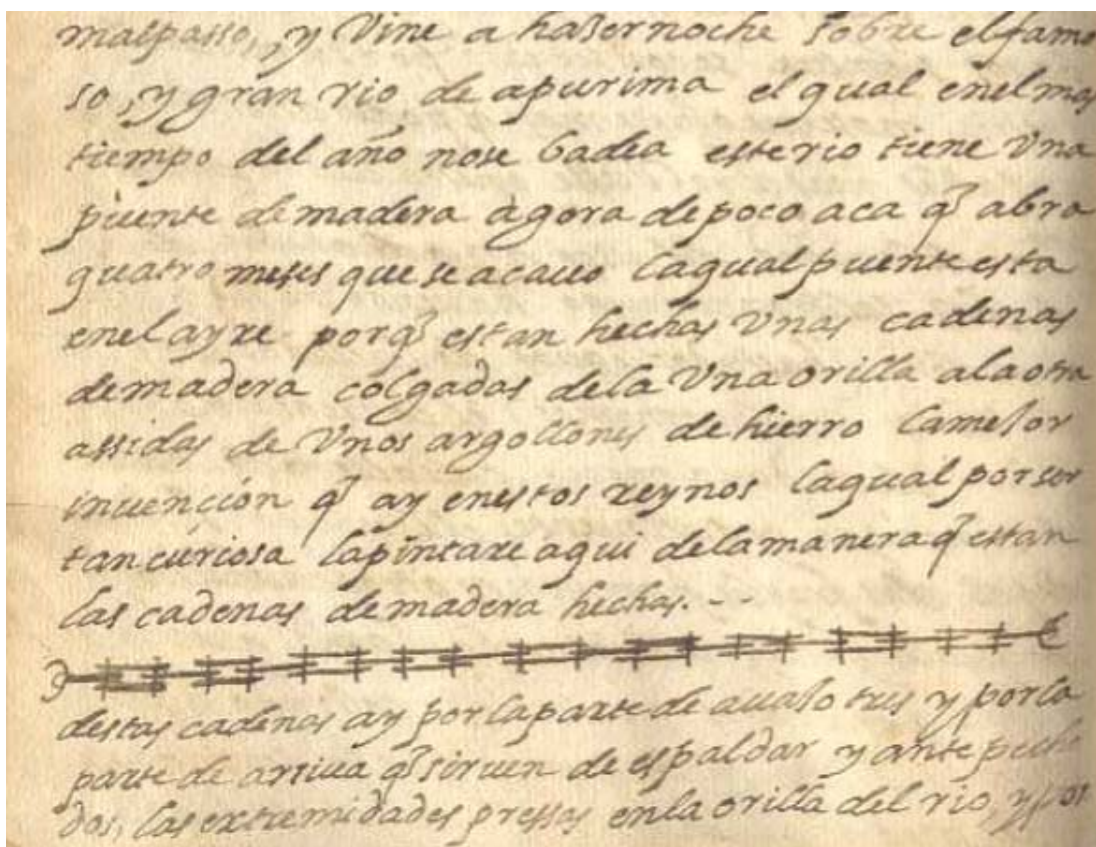 malpasso, y Vine a haser noche sobre el famo
so, y gran rio de apurima el qual enel mas
tiempo del año nose badea este rio tiene Vna
puente de madera agora de poco aca q̃ abra
quatro meses que se acauo laqual puente esta
enel ayre porq̃ estan hechas Vnas cadenas
de madera colgadas dela Vna orilla ala otra
assidas de Vnos argollones de hierro la mejor
inuención q̃ ay enestos reynos laqual por ser
tan curiosa la pintare aqui dela manera q̃ estan
las cadenas de madera hechas. - -
destas cadenas ay por la parte de auajo tres y por la
parte de arriua q̃ siruen de espaldar y ante pecho
dos, las extremidades pressas en la orilla del rio, y